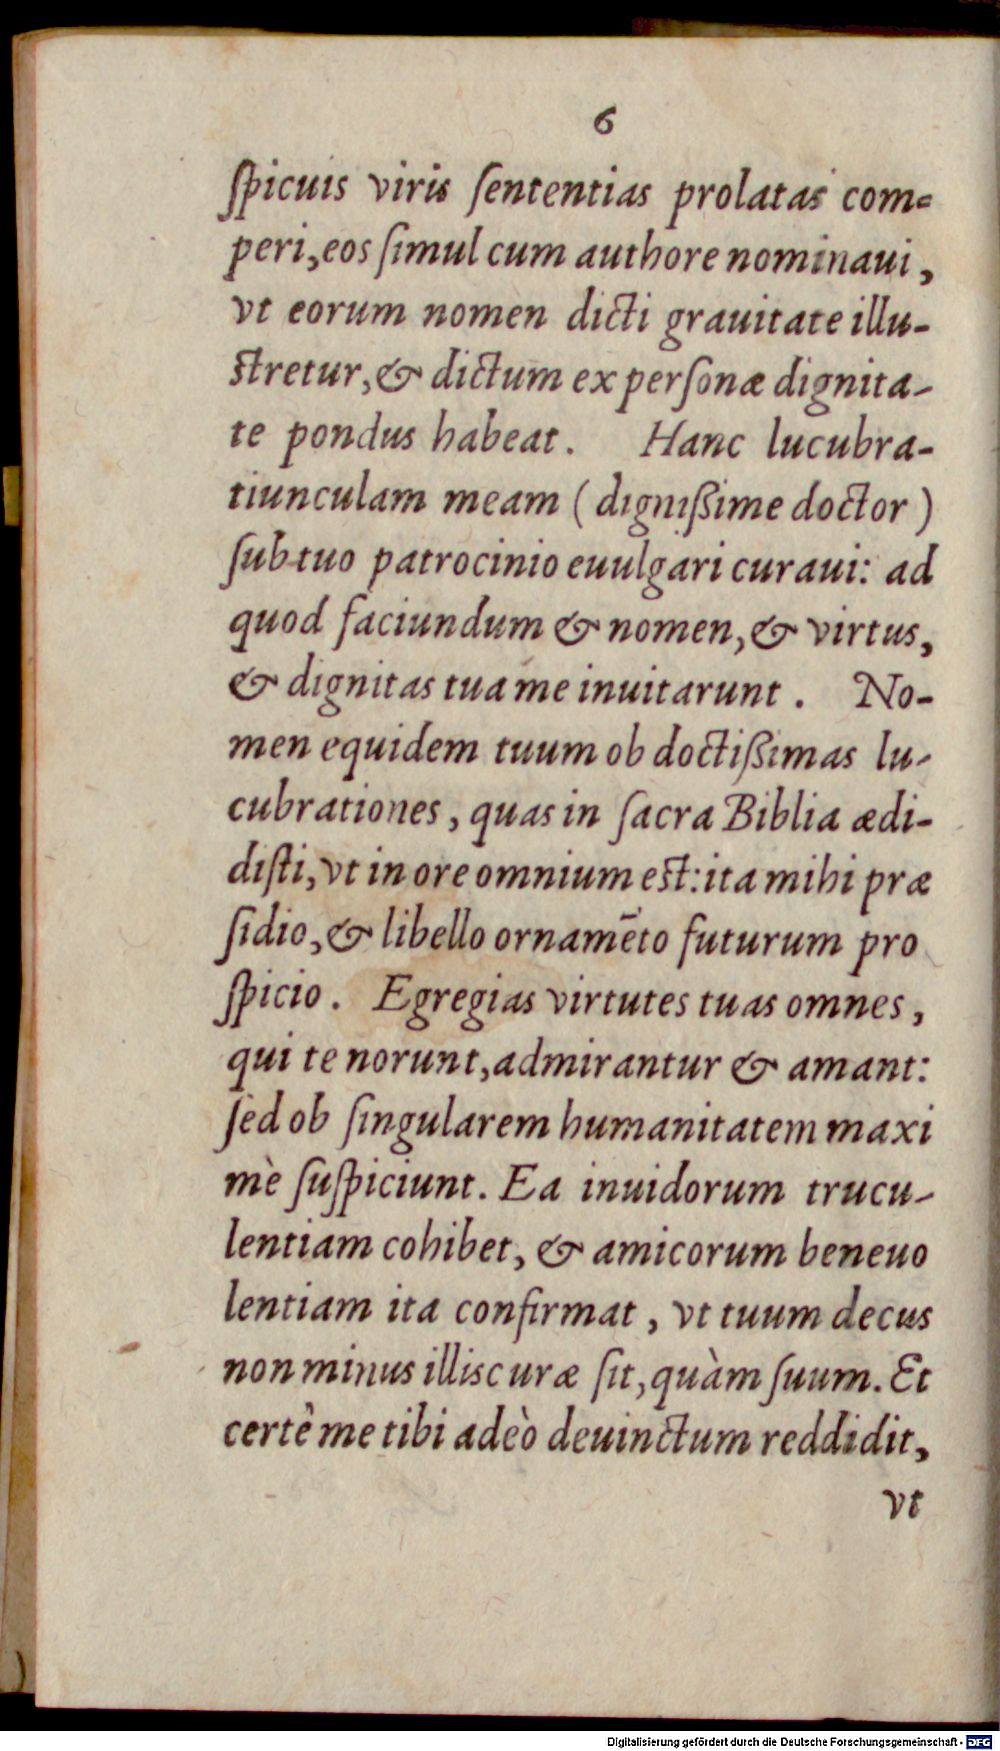 6
ſpicuis viris ſententias prolatas com=
peri, eos ſimul cum authore nominaui,
vt eorum nomen dicti grauitate illu-
ſtretur, & dictum ex perſonæ dignita-
te pondus habeat. Hanc lucubra-
tiunculam meam (digniſsime doctor)
ſub tuo patrocinio euulgari curaui: ad
quod faciundum & nomen, & virtus,
& dignitas tua me inuitarunt. No-
men equidem tuum ob doctiſsimas lu-
cubrationes, quas in ſacra Biblia ædi-
diſti, vt in ore omnium eſt: ita mihi præ
ſidio, & libello ornamēto futurum pro
ſpicio. Egregias virtutes tuas omnes,
qui te norunt, admirantur & amant:
ſed ob ſingularem humanitatem maxi
mè ſuſpiciunt. Ea inuidorum trucu-
lentiam cohibet, & amicorum beneuo
lentiam ita confirmat, vt tuum decus
non minus illis curæ ſit, quàm ſuum. Et
certê me tibi adeò deuinctum reddidit,
vt
Digitalisierung gefördert durch die Deutsche Forschungsgemeinschaft - DFG